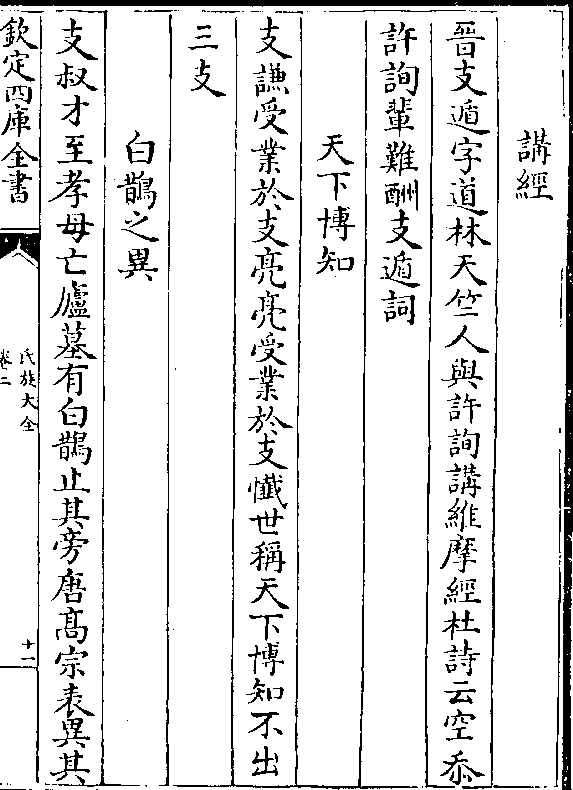 講經
晉支遁字道林天竺人與許詢講維摩經杜詩云空忝
許詢輩難酬支遁詞
天下博知
支謙受業於支亮亮受業於支懺世稱天下博知不出
三支
白鵲之異
支叔才至孝母亡廬墓有白鵲止其旁唐髙宗表異其
欽定四庫全書
氏族大全
卷二
十一